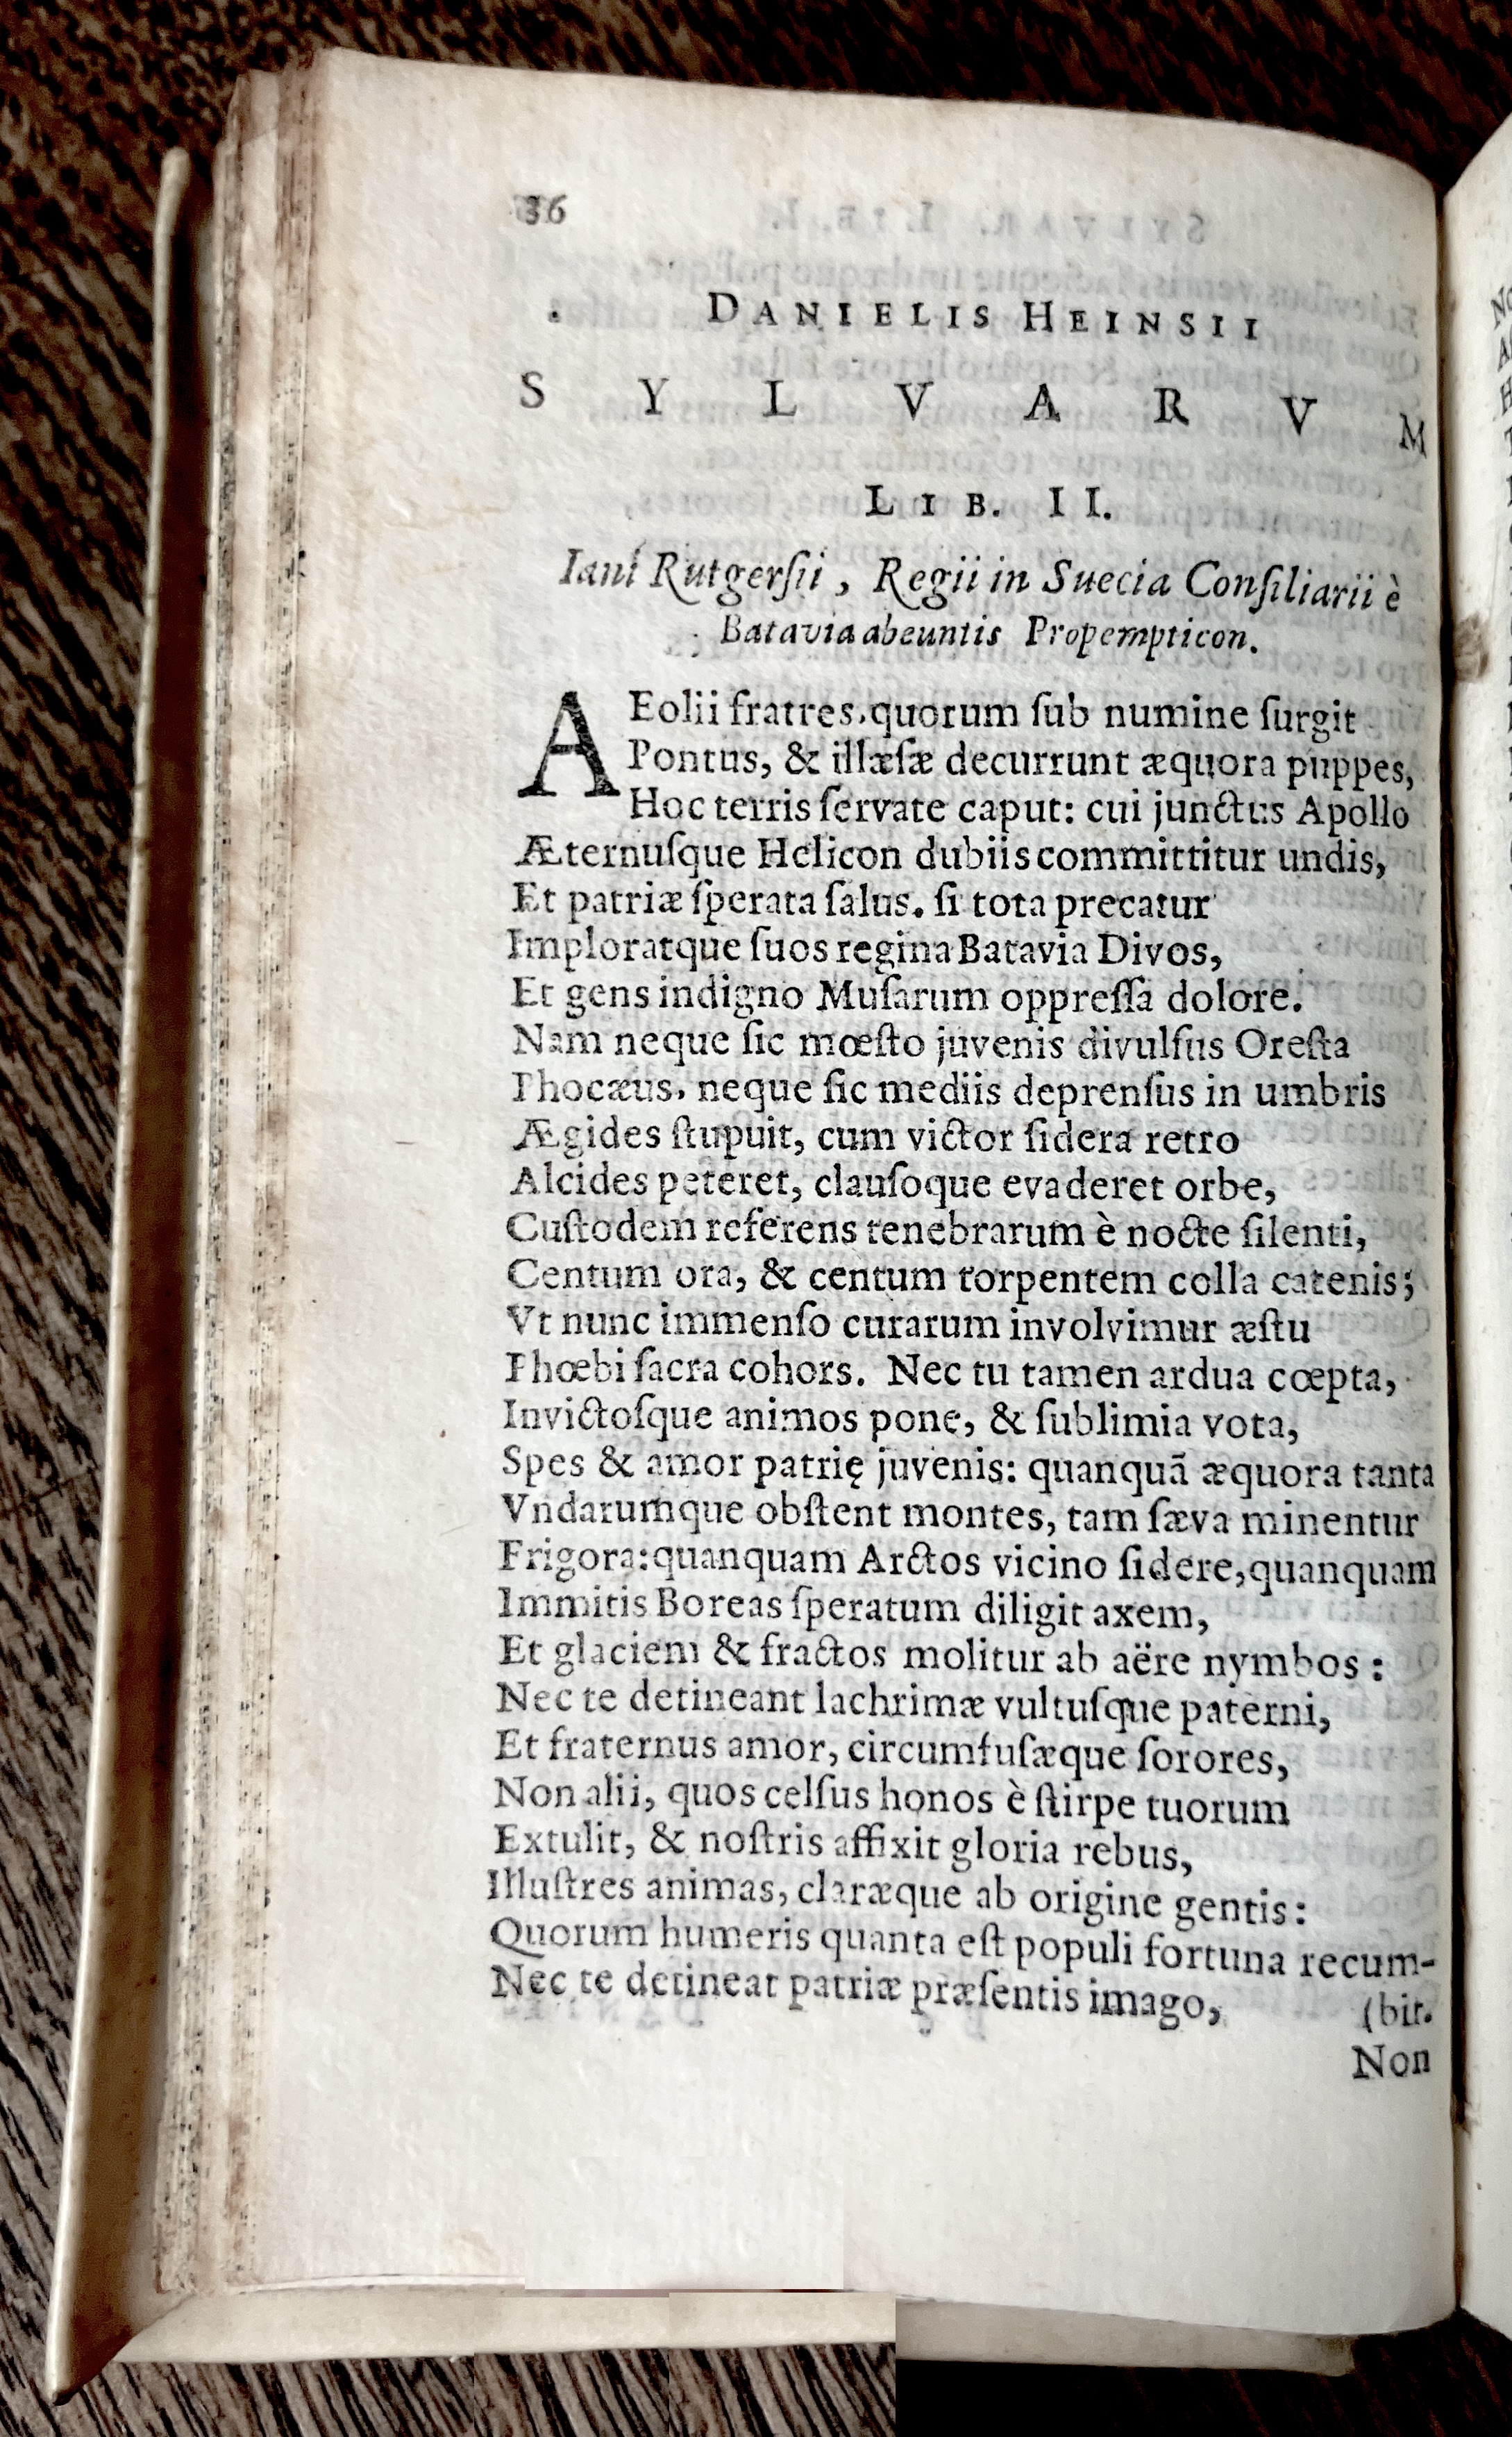 36
DANIELIS HEINSII
SYLVARVM
LIB. II.
Iani Rutgersii, Regii in Suecia Consiliarii è
Batavia abeuntis Propempticon.
AEolii fratres, quorum ſub numine ſurgit
Pontus, & illæſæ decurrunt æquora puppes,
Hoc terris ſervate caput: cui junctus Apollo
Æternuſque Helicon dubiis committitur undis,
Et patriæ ſperata ſalus. ſi tota precatur
Imploratque ſuos regina Batavia Divos,
Et gens indigno Muſarum oppreſſa dolore.
Nam neque ſic mœſto juvenis divulſus Oreſta
Phocæus, neque ſic mediis deprenſus in umbris
Ægides ſtupuit, cum victor ſidera retro
Alcides peteret, clauſoque evaderet orbe,
Cuſtodem referens tenebrarum è nocte ſilenti,
Centum ora, & centum torpentem colla catenis;
Vt nunc immenſo curarum involvimur æſtu
Phœbi ſacra cohors. Nec tu tamen ardua cœpta,
Invictoſque animos pone, & ſublimia vota,
Spes & amor patrię juvenis: quanquã æquora tanta
Vndarumque obſtent montes, tam ſæva minentur
Frigora: quanquam Arctos vicino ſidere, quanquam
Immitis Boreas ſperatum diligit axem,
Et glaciem & fractos molitur ab aëre nymbos:
Nec te detineant lachrimæ vultuſque paterni,
Et fraternus amor, circumfuſæque ſorores,
Non alii, quos celſus honos è ſtirpe tuorum
Extulit, & noſtris affixit gloria rebus,
Illuſtres animas, claræque ab origine gentis:
Quorum humeris quanta eſt populi fortuna recum-
Nec te detineat patriæ præſentis imago, (bit.
Non